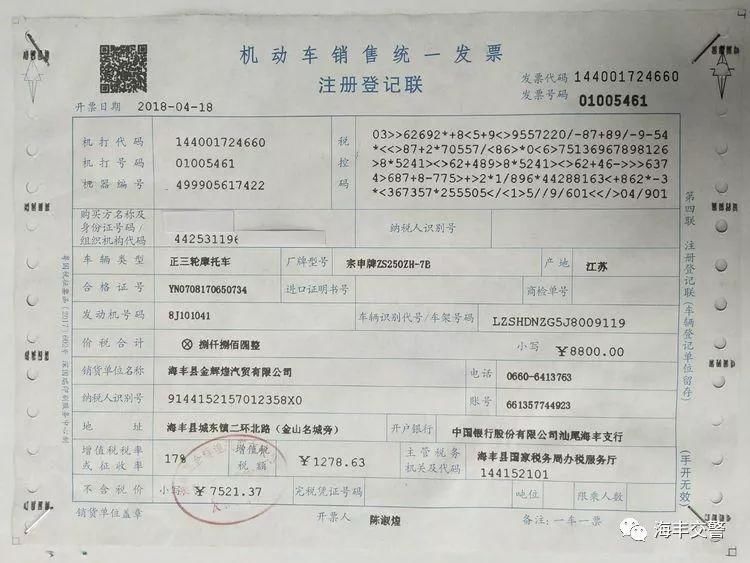 机动车销售统一发票
注册登记联
发票代码 144001724660
发票号码 01005461
开票日期 2018-04-18
机打代码 144001724660
机打号码 01005461
机器编号 499905617422
税控码
03>>62692*+8<5+9<>9557220/-87+89/-9-54
*<<>87+2*70557/<86>*0<6>75136967898126
>8*5241><>62+489>8*5241<>62+46->>>637
4>687+8-775>+>2*1/896*44288163<+862*-3
*<367357*255505</<1>5//9/601<</>04/901
购买方名称及
身份证号码/
组织机构代码
442531196
纳税人识别号
车辆类型 正三轮摩托车 厂牌型号 宗申牌ZS250ZH-7B 产地 江苏
合格证号 YN0708170650734 进口证明书号 商检单号
发动机号码 8J101041 车辆识别代号/车架号码 LZSHDNZG5J8009119
价税合计 ⊗ 捌仟捌佰圆整 小写 ￥8800.00
销货单位名称 海丰县金辉煌汽贸有限公司 电话 0660-6413763
纳税人识别号 9144152157012358X0 账号 661357744923
地址 海丰县城东镇二环北路（金山名城旁） 开户银行 中国银行股份有限公司汕尾海丰支行
增值税税率
或征收率
17%
增值税
税额
￥1278.63
主管税务
机关及代码
海丰县国家税务局办税服务厅
144152101
不含税价 小写 ￥7521.37 完税凭证号码 吨位 限乘人数
销货单位盖章 开票人 陈淑煌 备注：一车一票
第四联 注册登记联(车辆登记单位留存)
(手开无效)
海丰交警